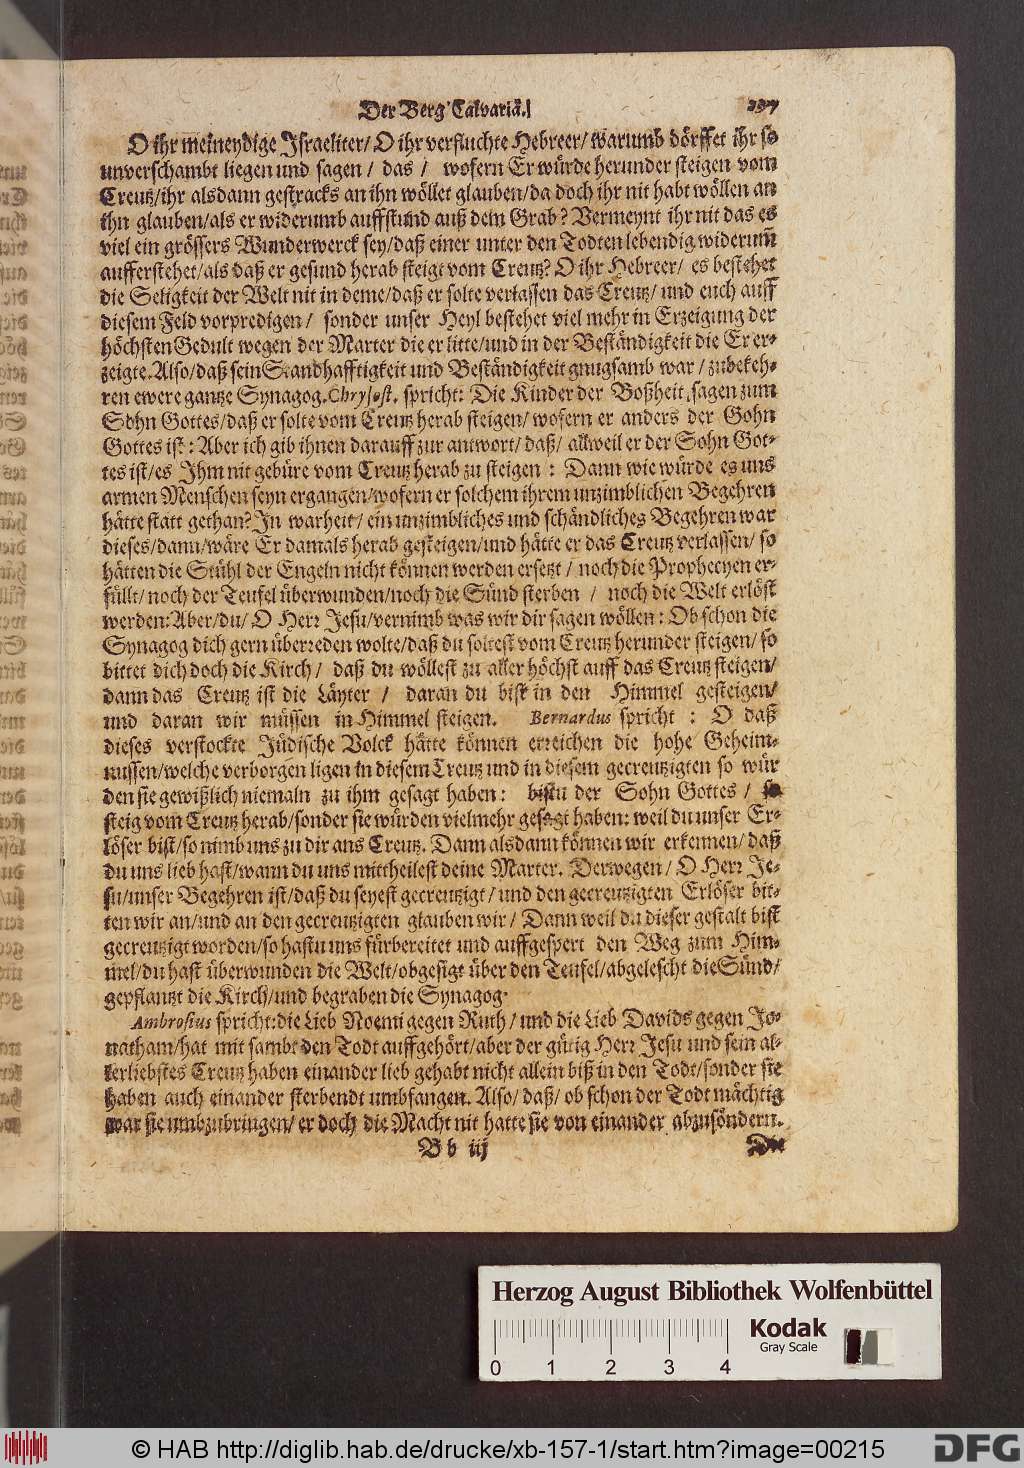 Der Berg Calvariä.
197
O ihr meineydige Israeliter/ O ihr verfluchte Hebreer/ warumb dörffet ihr so
unverschambt liegen und sagen / das / wofern Er würde herunder steigen vom
Creutz/ihr alsdann gestracks an ihn wöllet glauben/da doch ihr nit habt wöllen an
ihn glauben/als er widerumb auffstund auß dem Grab? Vermeynt ihr nit das es
viel ein grössers Wunderwerck sey/daß einer unter den Todten lebendig widerum̃
aufferstehet/als daß er gesund herab steigt vom Creutz? O ihr Hebreer/ es bestehet
die Seligkeit der Welt nit in deme/daß er solte verlassen das Creutz/ und euch auff
diesem Feld vorpredigen / sonder unser Heyl bestehet viel mehr in Erzeigung der
höchsten Gedult wegen der Marter die er litte/und in der Beständigkeit die Er er-
zeigte. Also/daß sein Standhafftigkeit und Beständigkeit gnugsamb war / zubekeh-
ren ewere gantze Synagog. Chrysost. spricht: Die Kinder der Boßheit sagen zum
Sohn Gottes/daß er solte vom Creutz herab steigen/ wofern er anders der Sohn
Gottes ist: Aber ich gib ihnen darauff zur antwort/ daß/ allweil er der Sohn Got-
tes ist/es Ihm nit gebüre vom Creutz herab zu steigen : Dann wie würde es uns
armen Menschen seyn ergangen/wofern er solchem ihrem unzimblichen Begehren
hätte statt gethan? In warheit/ ein unzimbliches und schändliches Begehren war
dieses/dann/wäre Er damals herab gesteigen/und hätte er das Creutz verlassen/ so
hätten die Stühl der Engeln nicht können werden ersetzt / noch die Prophecyen er-
füllt/ noch der Teufel überwunden/noch die Sünd sterben / noch die Welt erlöst
werden: Aber/du/ O Herr Jesu/vernimb was wir dir sagen wöllen: Ob schon die
Synagog dich gern überreden wolte/daß du soltest vom Creutz herunder steigen/ so
bittet dich doch die Kirch / daß du wöllest zu aller höchst auff das Creutz steigen/
dann das Creutz ist die Läyter / daran du bist in den Himmel gesteigen/
und daran wir müssen in Himmel steigen. Bernardus spricht : O daß
dieses verstockte Jüdische Volck hätte können erreichen die hohe Geheim-
nussen/welche verborgen ligen in diesem Creutz und in diesem gecreutzigten so wür
den sie gewißlich niemaln zu ihm gesagt haben: bistu der Sohn Gottes / so
steig vom Creutz herab/sonder sie würden vielmehr gesagt haben: weil du unser Er-
löser bist/so nimb uns zu dir ans Creutz. Dann alsdann können wir erkennen/ daß
du uns lieb hast/wann du uns mittheilest deine Marter. Derwegen/ O Herr Je-
su/unser Begehren ist/daß du seyest gecreutzigt / und den gecreutzigten Erlöser bit-
ten wir an/und an den gecreutzigten glauben wir / Dann weil du dieser gestalt bist
gecreutzigt worden/so hastu uns fürbereitet und auffgespert den Weg zum Him-
mel/du hast überwunden die Welt/obgesigt über den Teufel/abgelescht die Sünd/
gepflantzt die Kirch/und begraben die Synagog.
Ambrosius spricht: die Lieb Noemi gegen Ruth / und die Lieb Davids gegen Jo-
natham/hat mit sambt den Todt auffgehört/aber der gütig Herr Jesu und sein al-
lerliebstes Creutz haben einander lieb gehabt nicht allein biß in den Todt/sonder sie
haben auch einander sterbendt umbfangen. Also/ daß/ ob schon der Todt mächtig
war sie umbzubringen/ er doch die Macht nit hatte sie von einander abzusöndern.
B b iij
Die
Herzog August Bibliothek Wolfenbüttel
Kodak
Gray Scale
0 1 2 3 4
© HAB http://diglib.hab.de/drucke/xb-157-1/start.htm?image=00215
DFG